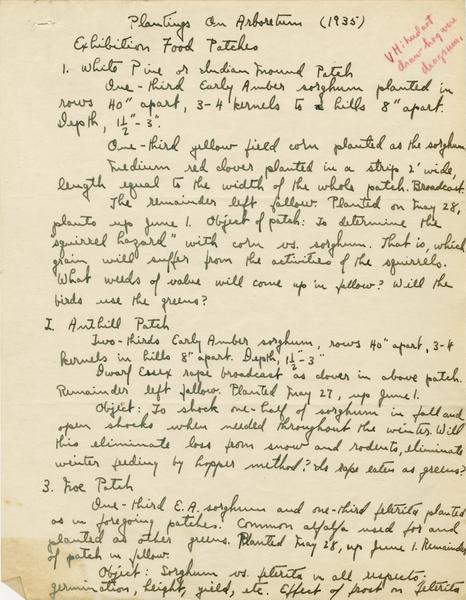 Plantings On Arboretum (1935)
VH: hadart
draw-hog were
diagram.
Exhibition Food Patches
1. White Pine or Indian Mound Patch
One-third Early Amber sorghum planted in
rows 40" apart, 3-4 kernels to hills 8" apart.
Depth, 1½"-3".
One-third yellow field corn planted as the sorghum
Medium red clover planted in a strip 2' wide,
length equal to the width of the whole patch. Broadcast.
The remainder left fallow. Planted on May 28,
plants up June 1. Object of patch: To determine the
"squirrel hazard" with corn vs. sorghum. That is, which
grain will suffer from the activities of the squirrels.
What weeds of value will come up in fallow? Will the
birds use the greens?
2. Anthill Patch
Two-thirds Early Amber sorghum, rows 40" apart, 3-4
kernels in hills 8" apart. Depth, 1½"-3"
Dwarf Essex rape broadcast as clover in above patch.
Remainder left fallow. Planted May 27, up June 1.
Object: To shock one-half of sorghum in fall and
open shocks when needed throughout the winter. Will
this eliminate loss from snow and rodents, eliminate
winter feeding by hopper method? Is rape eaten as greens?
3. Foe Patch
One-third E.A. sorghum and one-third feterita planted
as in foregoing patches. Common alfalfa used for and
planted as other greens. Planted May 28, up June 1. Remainder
of patch in fallow.
Object: Sorghum vs. feterita in all respects:
germination, height, yield, etc. Effect of frost on feterita